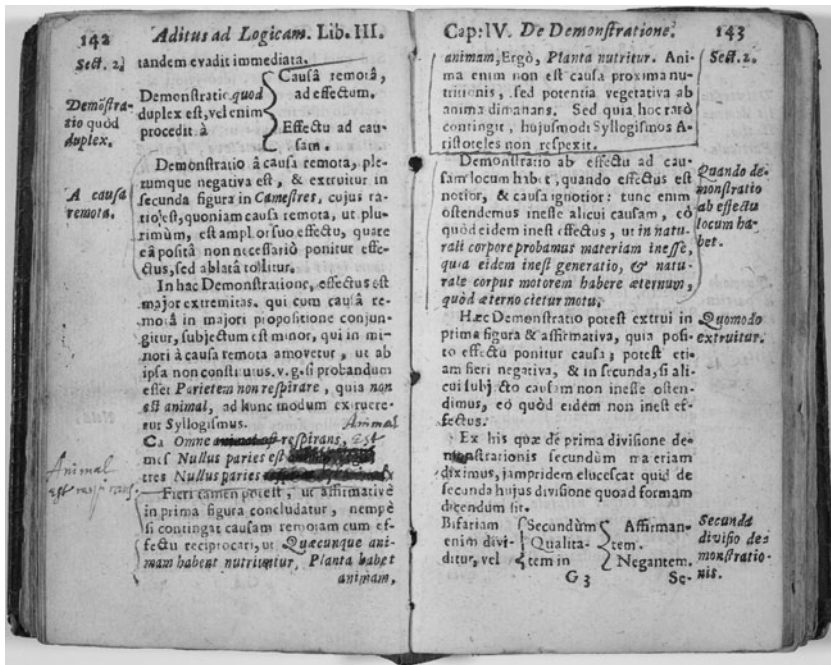 142 Aditus ad Logicam. Lib. III.
Sect. 2. tandem evadit immediata.
Causâ remotâ,
ad effectum.
Demonstratio quod
duplex est, vel enim
procedit â
Effectu ad cau-
sam.
Demõstra-
tio quòd
duplex.
Demonstratio â causa remota, ple-
rumque negativa est, & extruitur in
secunda figura in Camestres, cujus ra-
tio est, quoniam causa remota, ut plu-
rimùm, est amplior suo effectu, quare
eâ positâ non necessariò ponitur effe-
ctus, sed ablatâ tollitur.
A causa
remota.
In hac Demonstratione, effectus est
major extremitas, qui cum causâ re-
motâ in majori propositione conjun-
gitur, subjectum est minor, qui in mi-
nori à causa remota amovetur, ut ab
ipsa non constitutus. v. g. si probandum
esset Parietem non respirare, quia non
est animal, ad hunc modum extruere-
tur Syllogismus.
Animal
Ca Omne respirans, est
mes Nullus paries est
tres Nullus paries
Animal
est respirans
Fieri tamen potest, ut affirmativè
in prima figura concludatur, nempè
si contingat causam remotam cum ef-
fectu reciprocari, ut Quæcunque ani-
mam habent nutriuntur, Planta habet
animam,
Cap: IV. De Demonstratione. 143
animam, Ergò, Planta nutritur. Ani-
ma enim non est causa proxima nu-
tritionis, sed potentia vegetativa ab
anima dimanans. Sed quia hoc rarò
contingit, hujusmodi Syllogismos A-
ristoteles non respexit.
Sect. 2.
Demonstratio ab effectu ad cau-
sam locum habet, quando effectus est
notior, & causa ignotior: tunc enim
ostendemus inesse alicui causam, eò
quòd eidem inest effectus, ut in natu-
rali corpore probamus materiam inesse,
quia eidem inest generatio, & natu-
rale corpus motorem habere æternum,
quòd æterno cietur motu.
Quando de-
monstratio
ab effectu
locum ha-
bet.
Hæc Demonstratio potest extrui in
prima figura & affirmativa, quia posi-
to effectu ponitur causa; potest eti-
am fieri negativa, & in secunda, si ali-
cui subjecto causam non inesse osten-
dimus, eò quòd eidem non inest ef-
fectus.
Quomodo
extruitur.
Ex his quæ de prima divisione de-
monstrationis secundùm materiam
diximus, jampridem elucescat quid de
secunda hujus divisione quoad formam
dicendum sit.
Bifariam Secundùm Affirman-
enim divi- Qualita- tem.
ditur, vel tem in Negantem.
Secunda
divisio de-
monstratio-
nis.
G 3 Se-